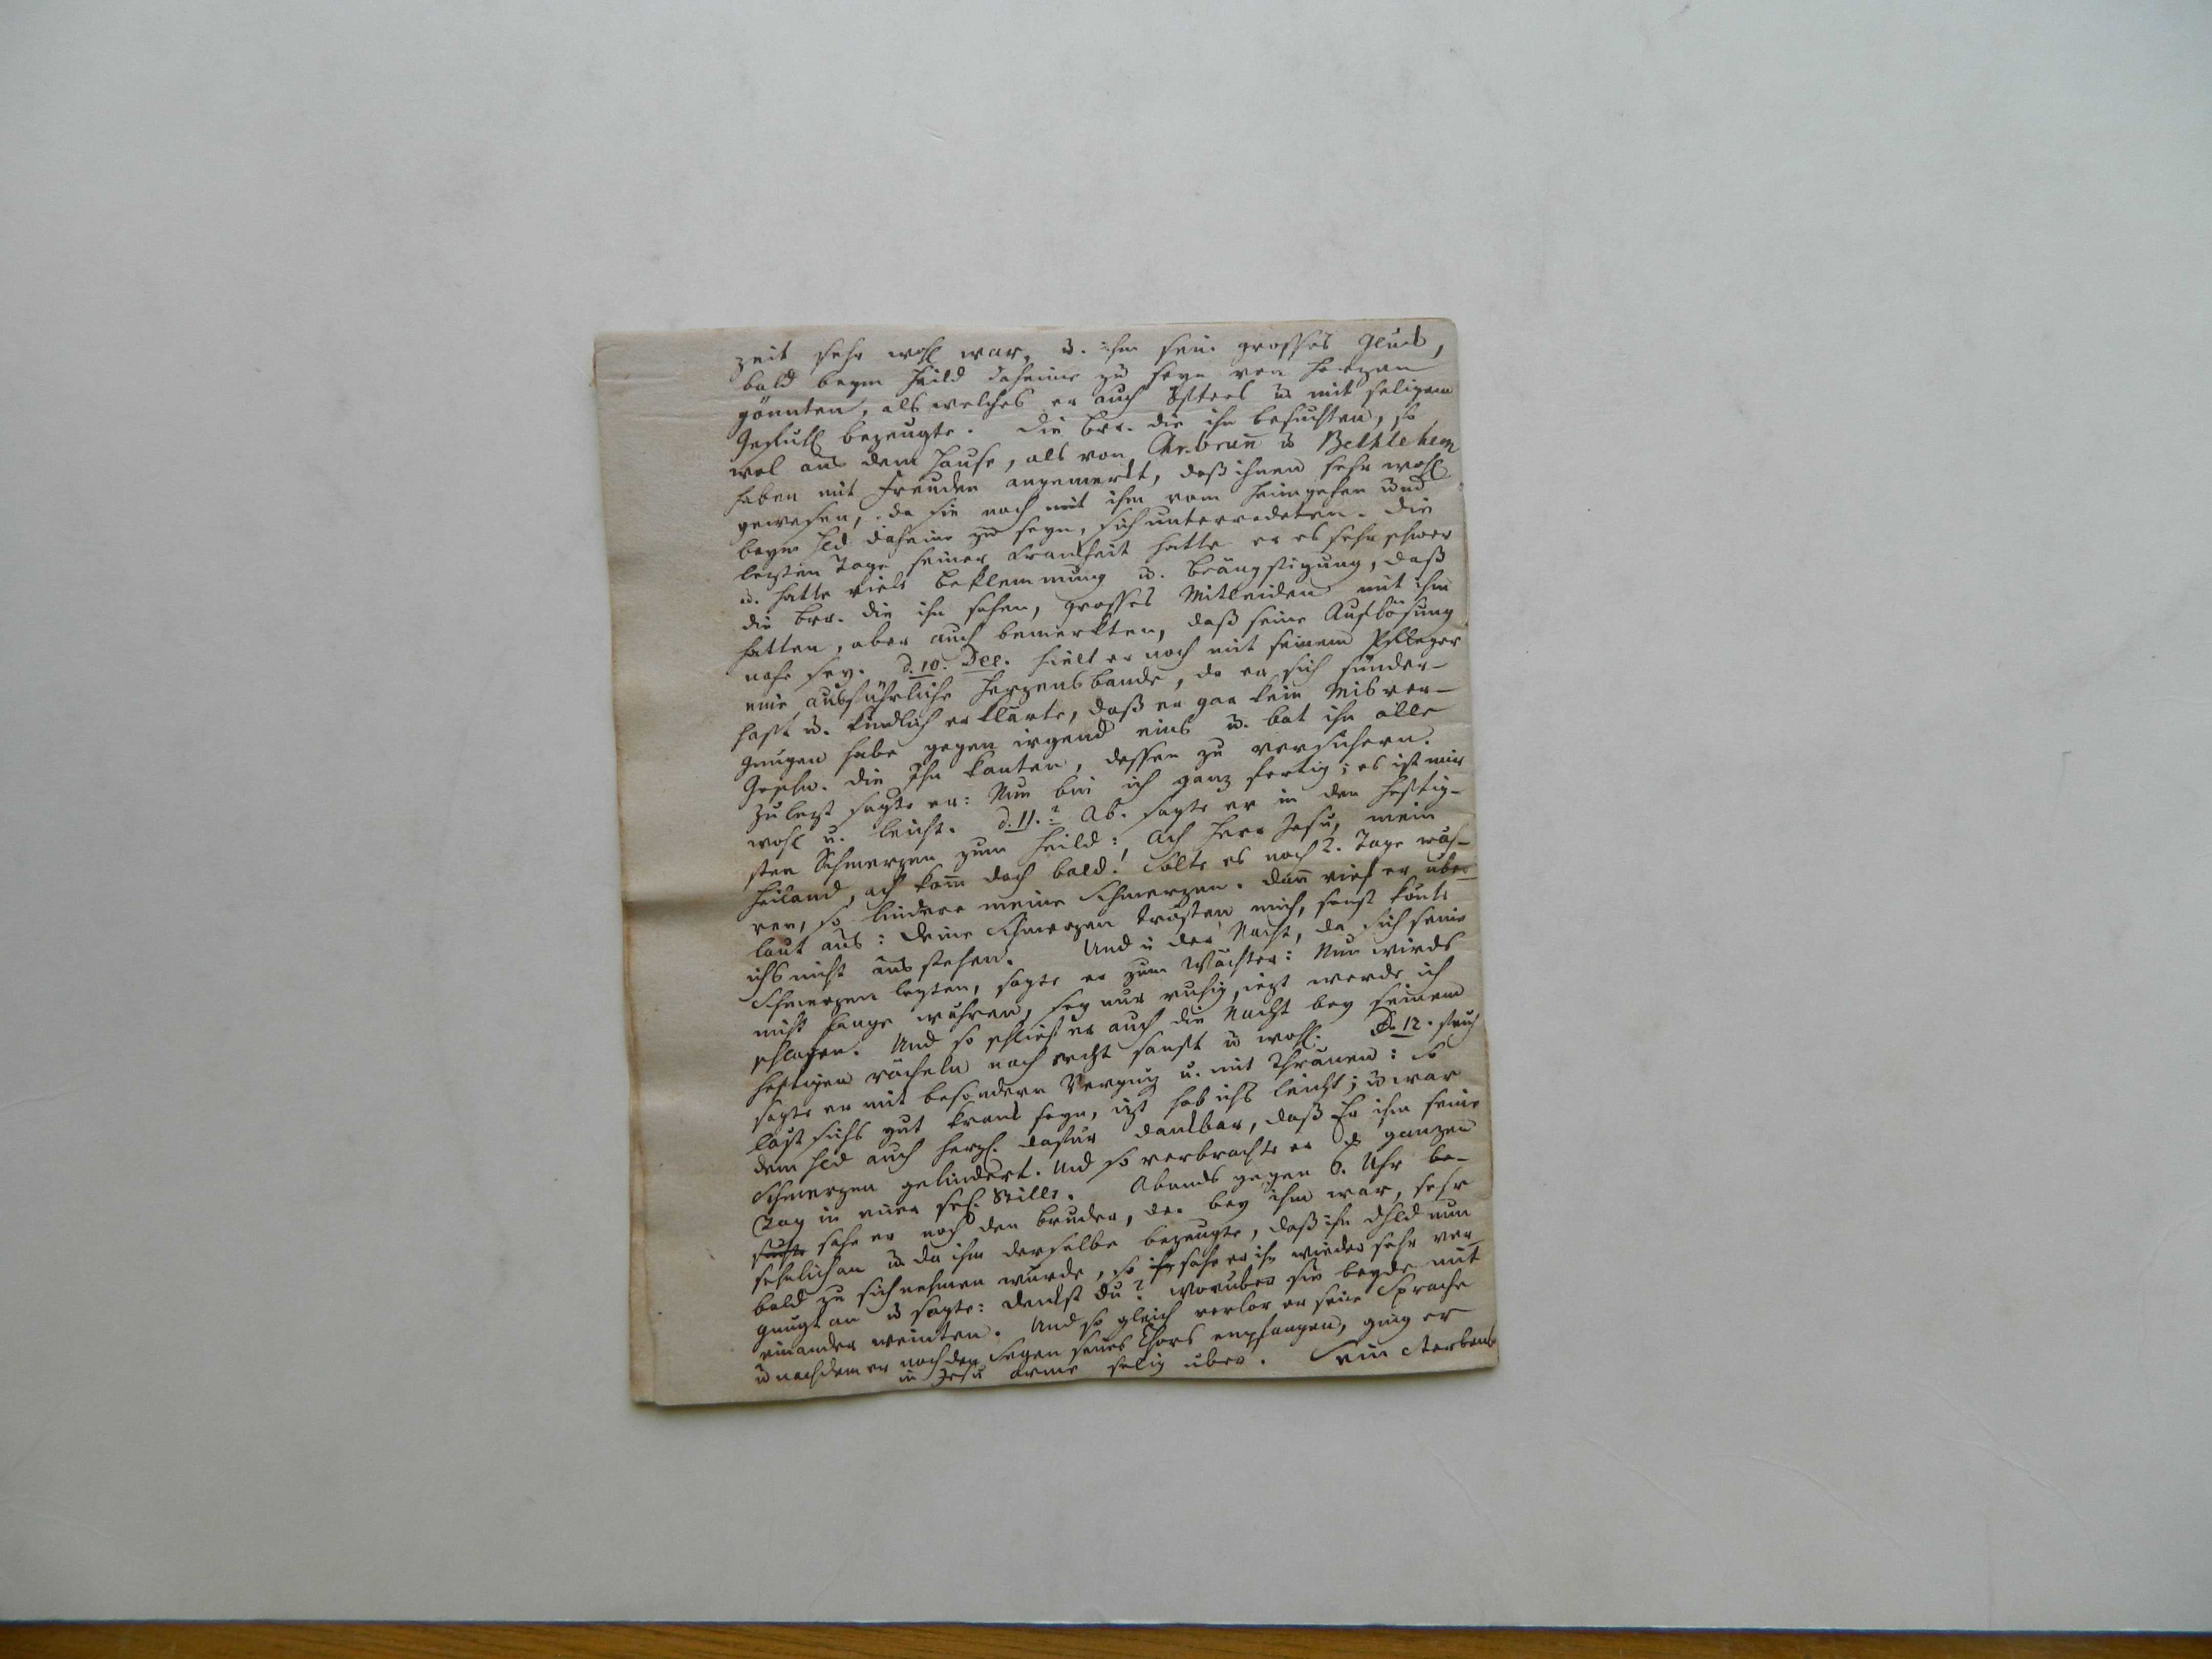 zeit sehr wohl war, u. ihm sein grosses Glück,
bald beym Heild daheime zu seyn von Herzen
gönnten, als welches er auch öfters u. mit seligem
Gefühl bezeugte. Die Brr. die ihn besuchten, so
wol aus dem Hause, als von Chr.brun̄ u Bethlehem
haben mit Freuden angemerkt, daß ihnen sehr wohl
gewesen, da sie noch mit ihm vom Heimgehen und
beym Hld daheime zu seyn, sich unterredeten. Die
lezten Tage seiner Krankheit hatte er es sehr schwer
u. hatte viele Beklemmung u. Beängstigung, daß
die Brr. die ihn sahen, grosses Mitleiden mit ihm
hatten, aber auch bemerkten, daß seine Auflösung
nahe sey. d. 10. Dec. hielt er noch mit seinem Pfleger
eine ausführliche Herzensbande, da er sich sünder-
haft u. kindlich erklärte, daß er gar kein Misver-
gnügen habe gegen irgend eins u. bat ihn alle
Geschw. die Ihn kanten, dessen zu versichern.
Zulezt sagte er: Nun bin ich ganz fertig; es ist mir
wohl u. leicht. d. 11. Ab. sagte er in den heftig-
sten Schmerzen zum Heild: Ach Herr Jesu, mein
Heiland, ach kom̄ doch bald! Solte es noch 2. Tage wäh-
ren, so lindere meine Schmerzen. Dan̄ rief er über-
laut aus: Deine Schmerzen trösten mich, sonst könte
ichs nicht ausstehen. Und in der Nacht, da sich seine
Schmerzen legten, sagte er zum Wächter: Nun wirds
nicht lange währen, sey nur ruhig, iezt werde ich
schlafen. Und so schlief er auch die Nacht bey seinem
heftigen röcheln noch recht sanft u wohl. D. 12. früh
sagte er mit besondern Vergnüg u. mit Thränen: So
läst sichs gut krank seyn, izt hab ichs leicht; u war
dem Hld auch herzl. dafür dankbar, daß Er ihm seine
Schmerzen gelindert. Und so verbrachte er d ganzen
Tag in einer sel. Stille. Abends gegen 6. Uhr be-
sahe er noch den Bruder, der bey ihm war, sehr
sehnlich an u da ihm derselbe bezeugte, daß ihn d Hld nun
bald zu sich nehmen würde, so sahe er ihn wieder sehr ver-
gnügt an u sagte: Denkst du? worüber sie beyde mit
einander weinten. Und so gleich verlor er seine Sprache
u nachdem er noch den Segen seines Chors empfangen, ging er
in Jesu Arme selig über. Sein Sterbens